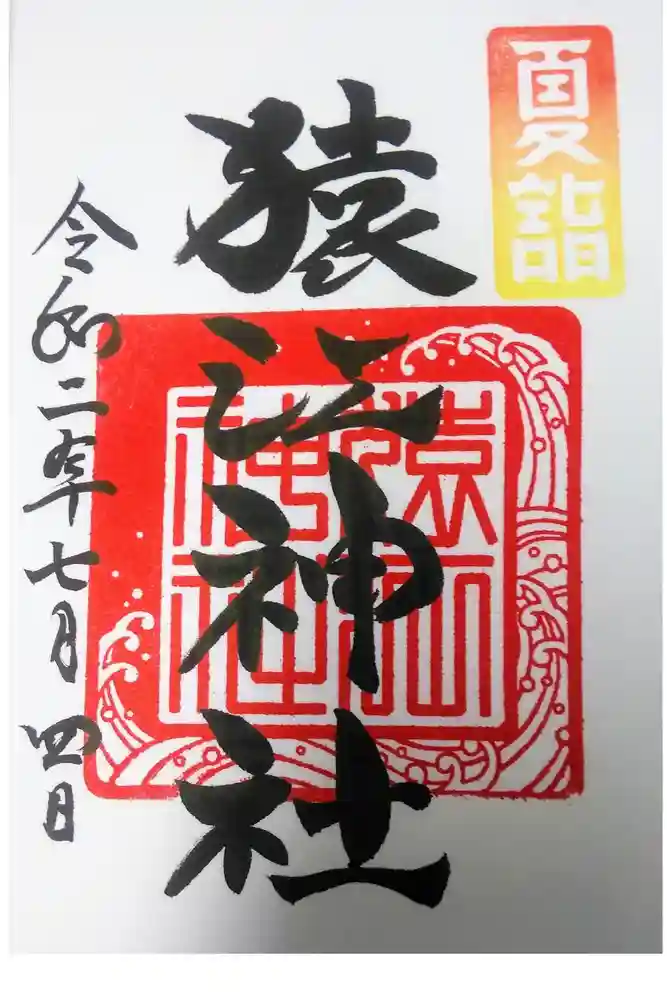 夏詣
猿江神社
猿江
神社
令和二年七月四日